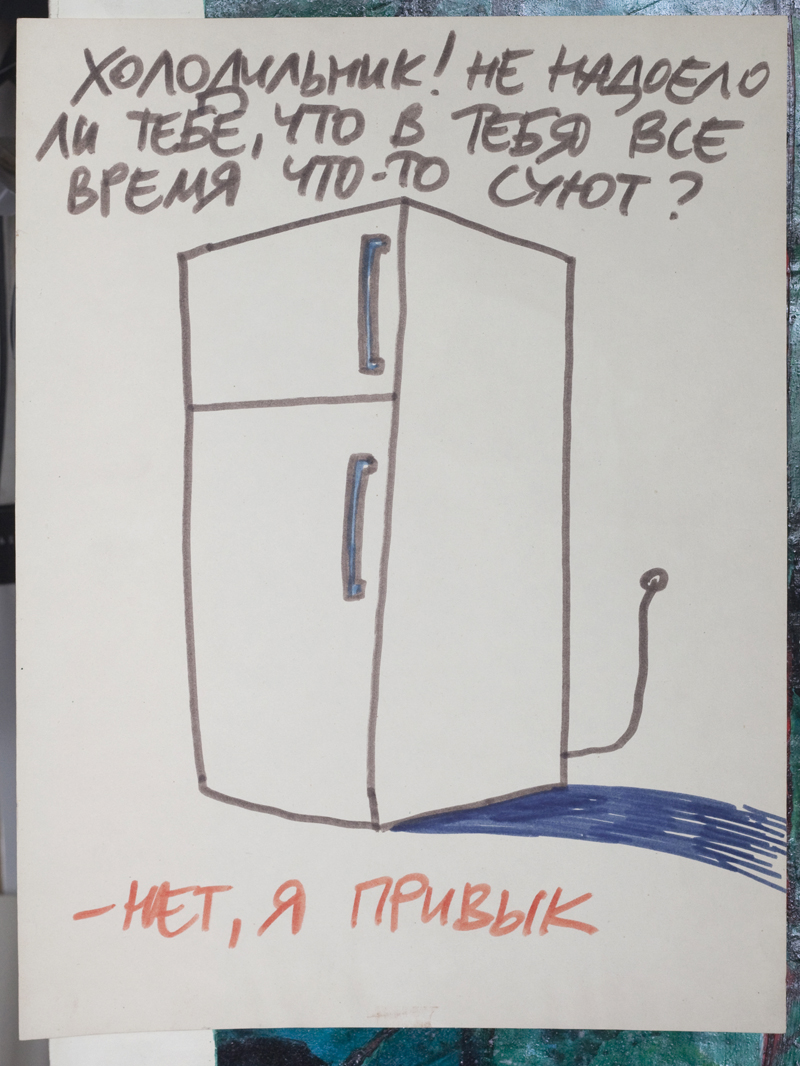 ХОЛОДИЛЬНИК! НЕ НАДОЕЛО
ЛИ ТЕБЕ, ЧТО В ТЕБЯ ВСЕ
ВРЕМЯ ЧТО-ТО СУЮТ?
- НЕТ, Я ПРИВЫК